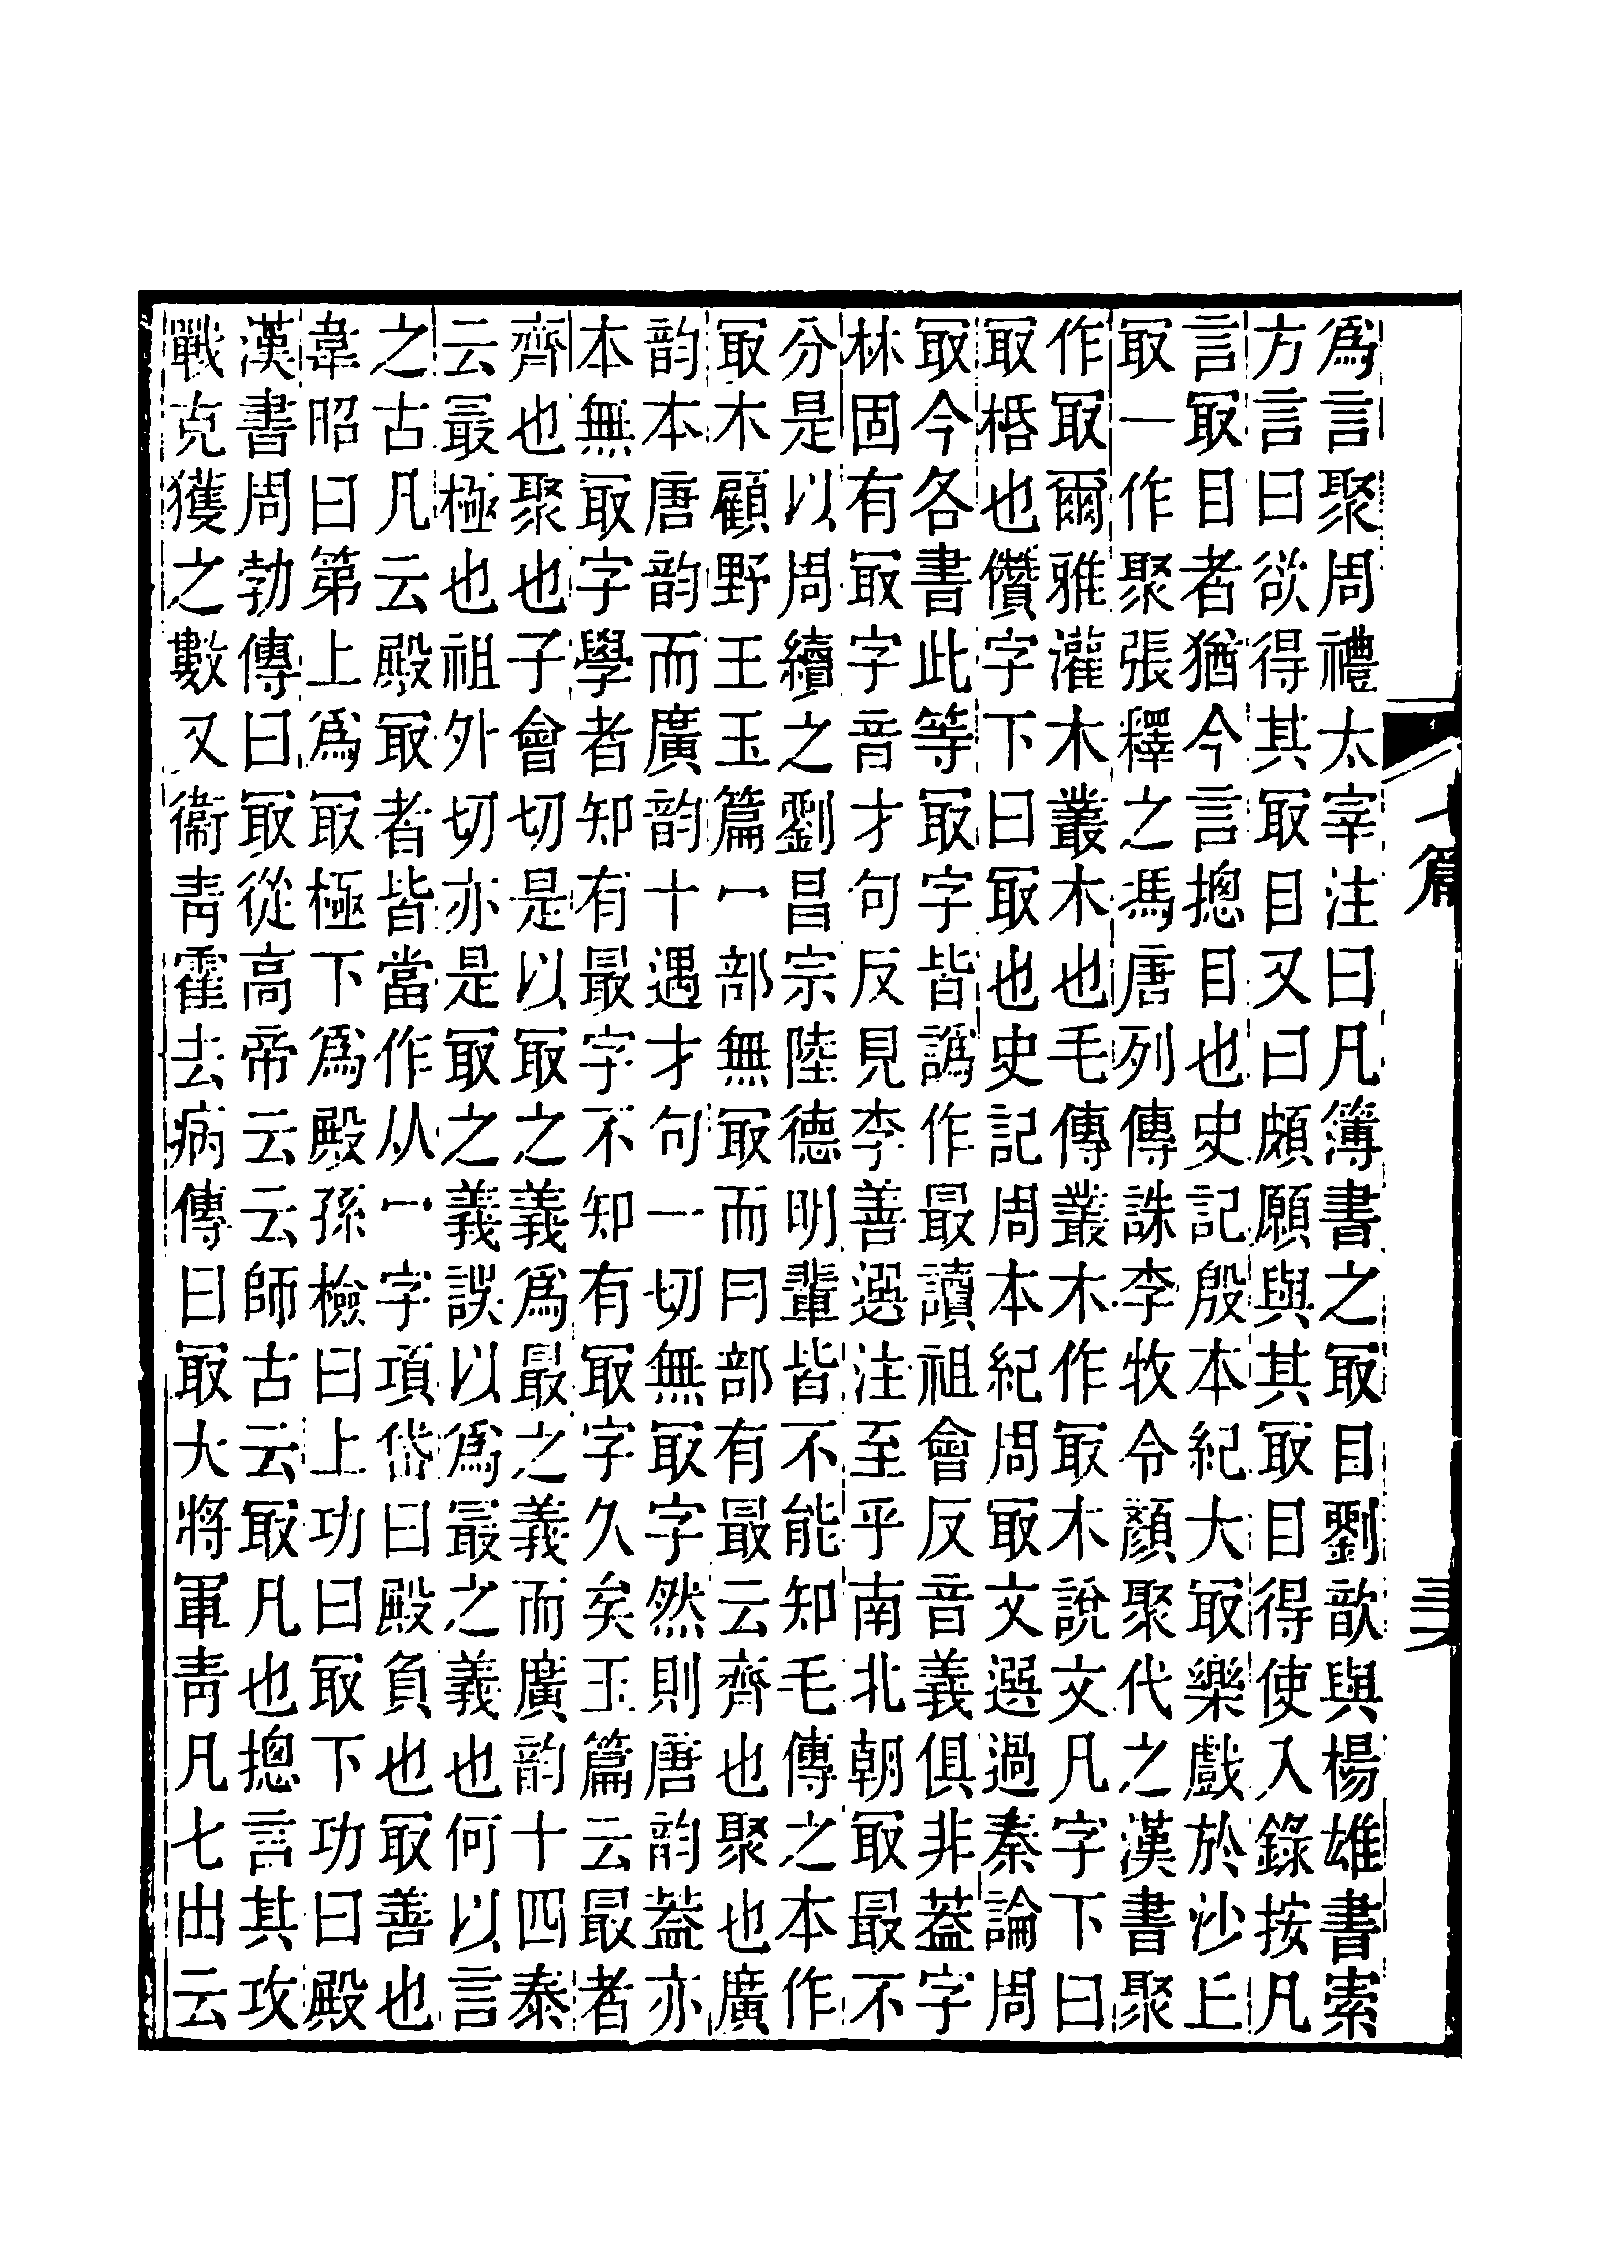 爲言聚周禮太宰注曰凡簿書之冣目劉歆與楊雄書索
方言曰欲得其冣目又曰頗願與其冣目得使入錄按凡
言冣目者猶今言摠目也史記殷本紀大冣樂戲於沙丘
冣一作聚張釋之馮唐列傳誅李牧令顏聚代之漢書聚
作冣爾雅灌木叢木也毛傳叢木作冣木說文凡字下曰
冣桰也儹字下曰冣也史記周本紀周冣文選過秦論周
冣今各書此等冣字皆譌作最讀祖會反音義俱非葢字
林固有冣字音才句反見李善選注至乎南北朝冣最不
分是以周續之劉昌宗陸德明輩皆不能知毛傳之本作
冣木顧野王玉篇冖部無冣而冃部有最云齊也聚也廣
韵本唐韵而廣韵十遇才句一切無冣字然則唐韵葢亦
本無冣字學者知有最字不知有冣字久矣玉篇云最者
齊也聚也子會切是以冣之義爲最之義而廣韵十四泰
云最極也祖外切亦是冣之義誤以爲最之義也何以言
之古凡云殿冣者皆當作从冖字項岱曰殿負也冣善也
韋昭曰第上爲冣極下爲殿孫檢曰上功曰冣下功曰殿
漢書周勃傳曰冣從高帝云云師古云冣凡也摠言其攻
戰克獲之數又衞靑霍去病傳曰冣大將軍靑凡七出云
七篇